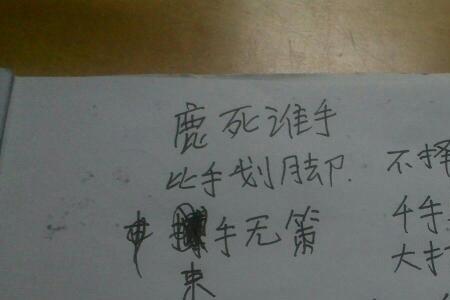 鹿死谁手
比手划脚.
手无策
束
不择
千手
大